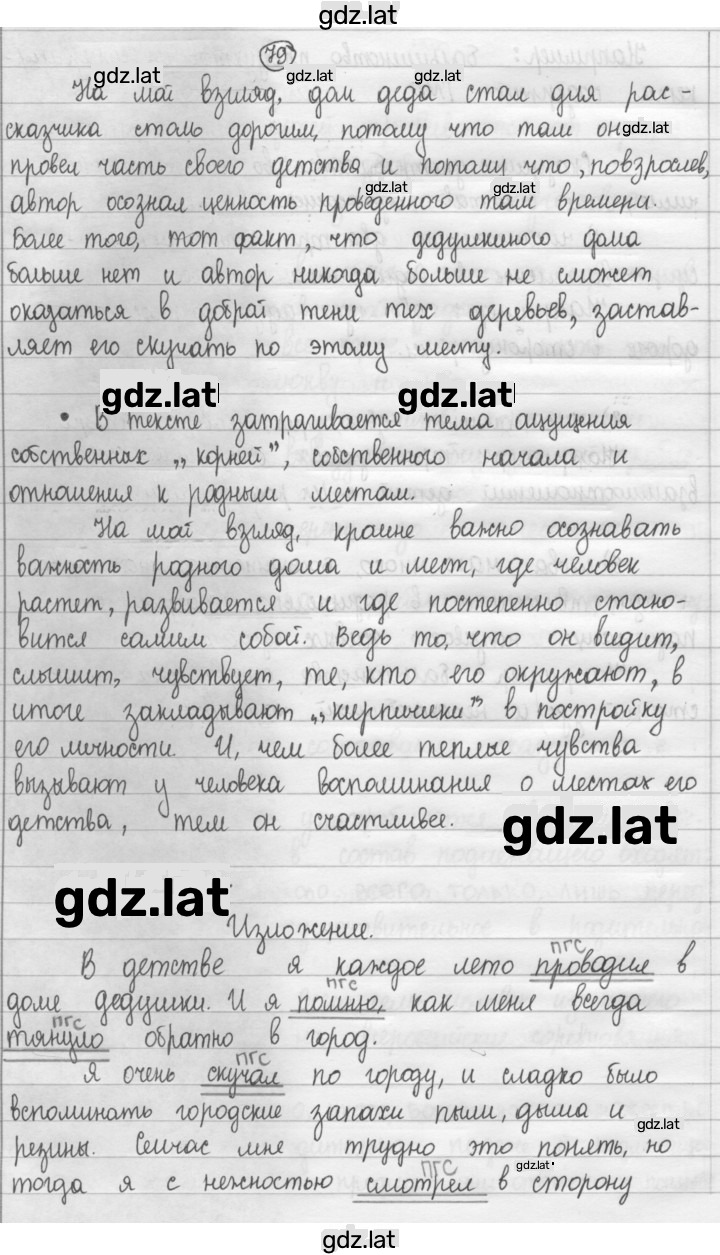 gdz.lat
79
gdz.lat gdz.lat gdz.lat gdz.lat
На мой взгляд, дом деда стал для рас-
сказчика столь дорогим, потому что там он gdz.lat
провел часть своего детства и потому что, повзрослев,
gdz.lat gdz.lat
автор осознал ценность проведенного там времени.
Более того, тот факт, что дедушкиного дома
больше нет и автор никогда больше не сможет
оказаться в доброй тени тех деревьев, застав-
ляет его скучать по этому месту.
gdz.lat gdz.lat
• В тексте затрагивается тема ощущения
собственных „корней”, собственного начала и
отношения к родным местам.
На мой взгляд, крайне важно осознавать
важность родного дома и мест, где человек
растет, развивается и где постепенно стано-
вится самим собой. Ведь то, что он видит,
слышит, чувствует, те, кто его окружают, в
итоге закладывают „кирпичики” в постройку
его личности. И, чем более теплые чувства
вызывают у человека воспоминания о местах его
детства, тем он счастливее.
gdz.lat
gdz.lat
Изложение.
ПГС
В детстве я каждое лето проводил в
ПГС
доме дедушки. И я помню, как меня всегда
ПГС
тянуло обратно в город.
ПГС
Я очень скучал по городу, и сладко было
вспоминать городские запахи пыли, дыма и
gdz.lat
резины. Сейчас мне трудно это понять, но
ПГС gdz.lat
тогда я с нежностью смотрел в сторону
gdz.lat